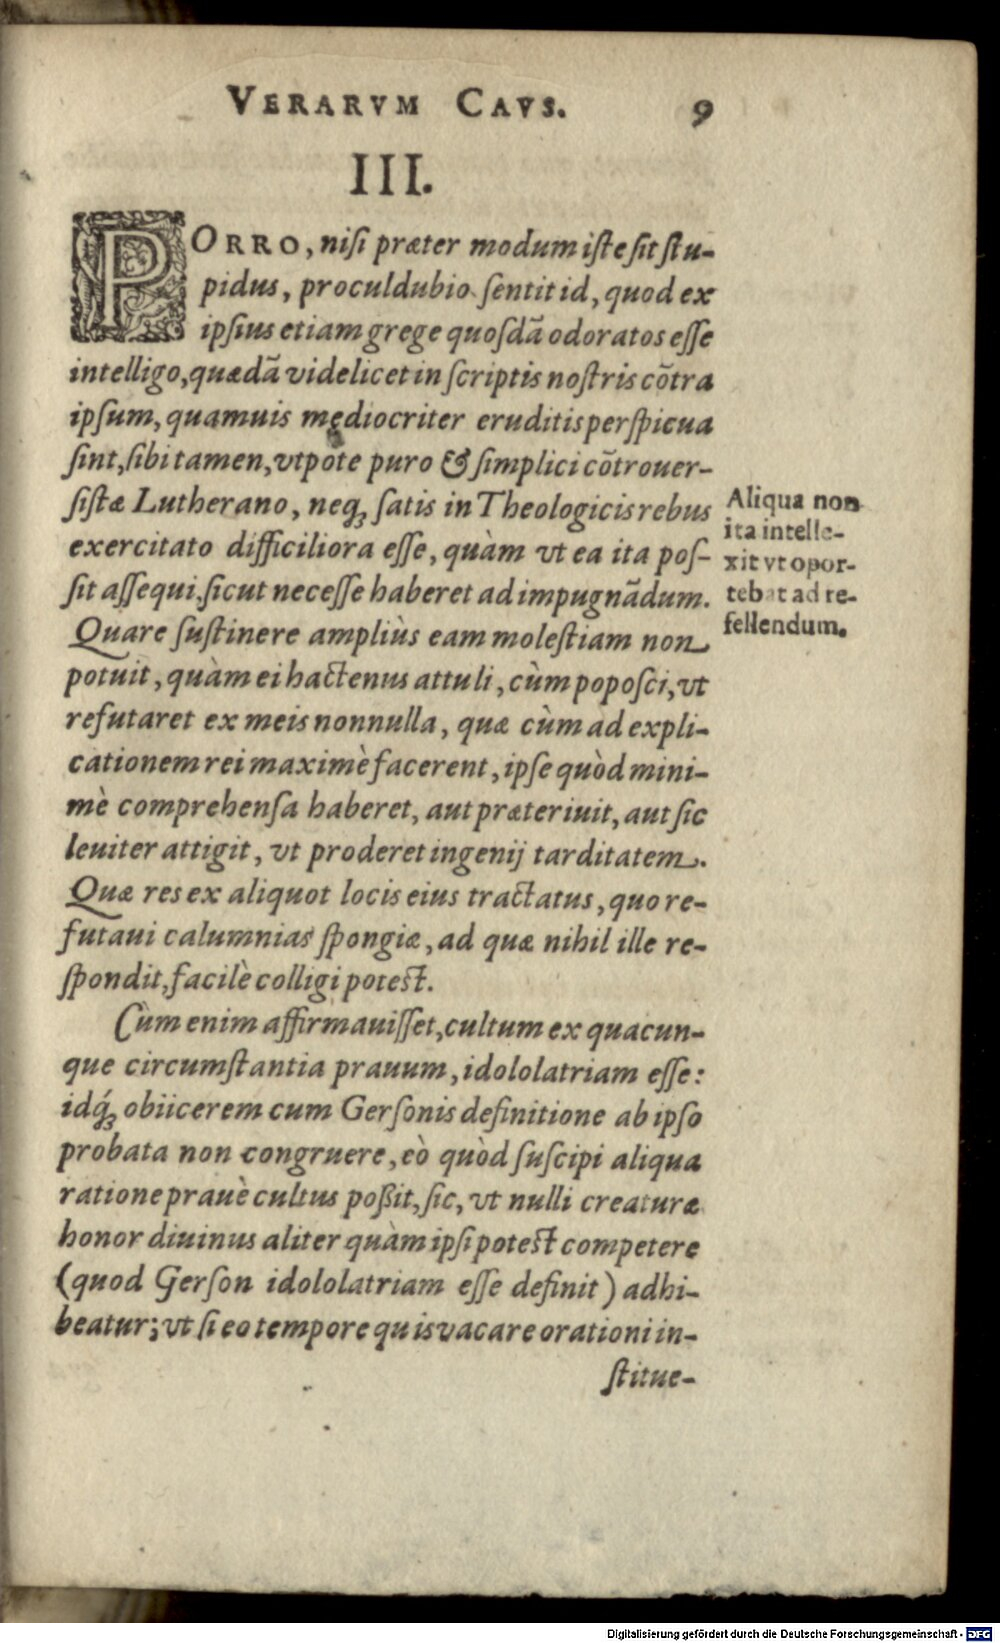 VERARVM CAVS. 9
III.
PORRO, niſi præter modum iſte ſit ſtu-
pidus, proculdubio ſentit id, quod ex
ipſius etiam grege quoſdā odoratos eſſe
intelligo, quædā videlicet in ſcriptis noſtris cōtra
ipſum, quamuis mediocriter eruditis perſpicua
ſint, ſibi tamen, vtpote puro & ſimplici cōtrouer-
ſiſtæ Lutherano, neq́; ſatis in Theologicis rebus
exercitato difficiliora eſſe, quàm vt ea ita poſ-
ſit aſſequi, ſicut neceſſe haberet ad impugnādum.
Quare ſuſtinere ampliùs eam moleſtiam non
potuit, quàm ei hactenus attuli, cùm popoſci, vt
refutaret ex meis nonnulla, quæ cùm ad expli-
cationem rei maximè facerent, ipſe quòd mini-
mè comprehenſa haberet, aut præteriuit, aut ſic
leuiter attigit, vt proderet ingenij tarditatem.
Quæ res ex aliquot locis eius tractatus, quo re-
futaui calumnias ſpongiæ, ad quæ nihil ille re-
ſpondit, facilè colligi poteſt.
Cùm enim affirmauiſſet, cultum ex quacun-
que circumſtantia prauum, idololatriam eſſe:
idq́; obiicerem cum Gerſonis definitione ab ipſo
probata non congruere, eò quòd ſuſcipi aliqua
ratione prauè cultus poßit, ſic, vt nulli creaturæ
honor diuinus aliter quàm ipſi poteſt competere
(quod Gerſon idololatriam eſſe definit) adhi-
beatur; vt ſi eo tempore quis vacare orationi in-
ſtitue-
Aliqua non
ita intelle-
xit vt opor-
tebat ad re-
fellendum.
Digitalisierung gefördert durch die Deutsche Forschungsgemeinschaft - DFG